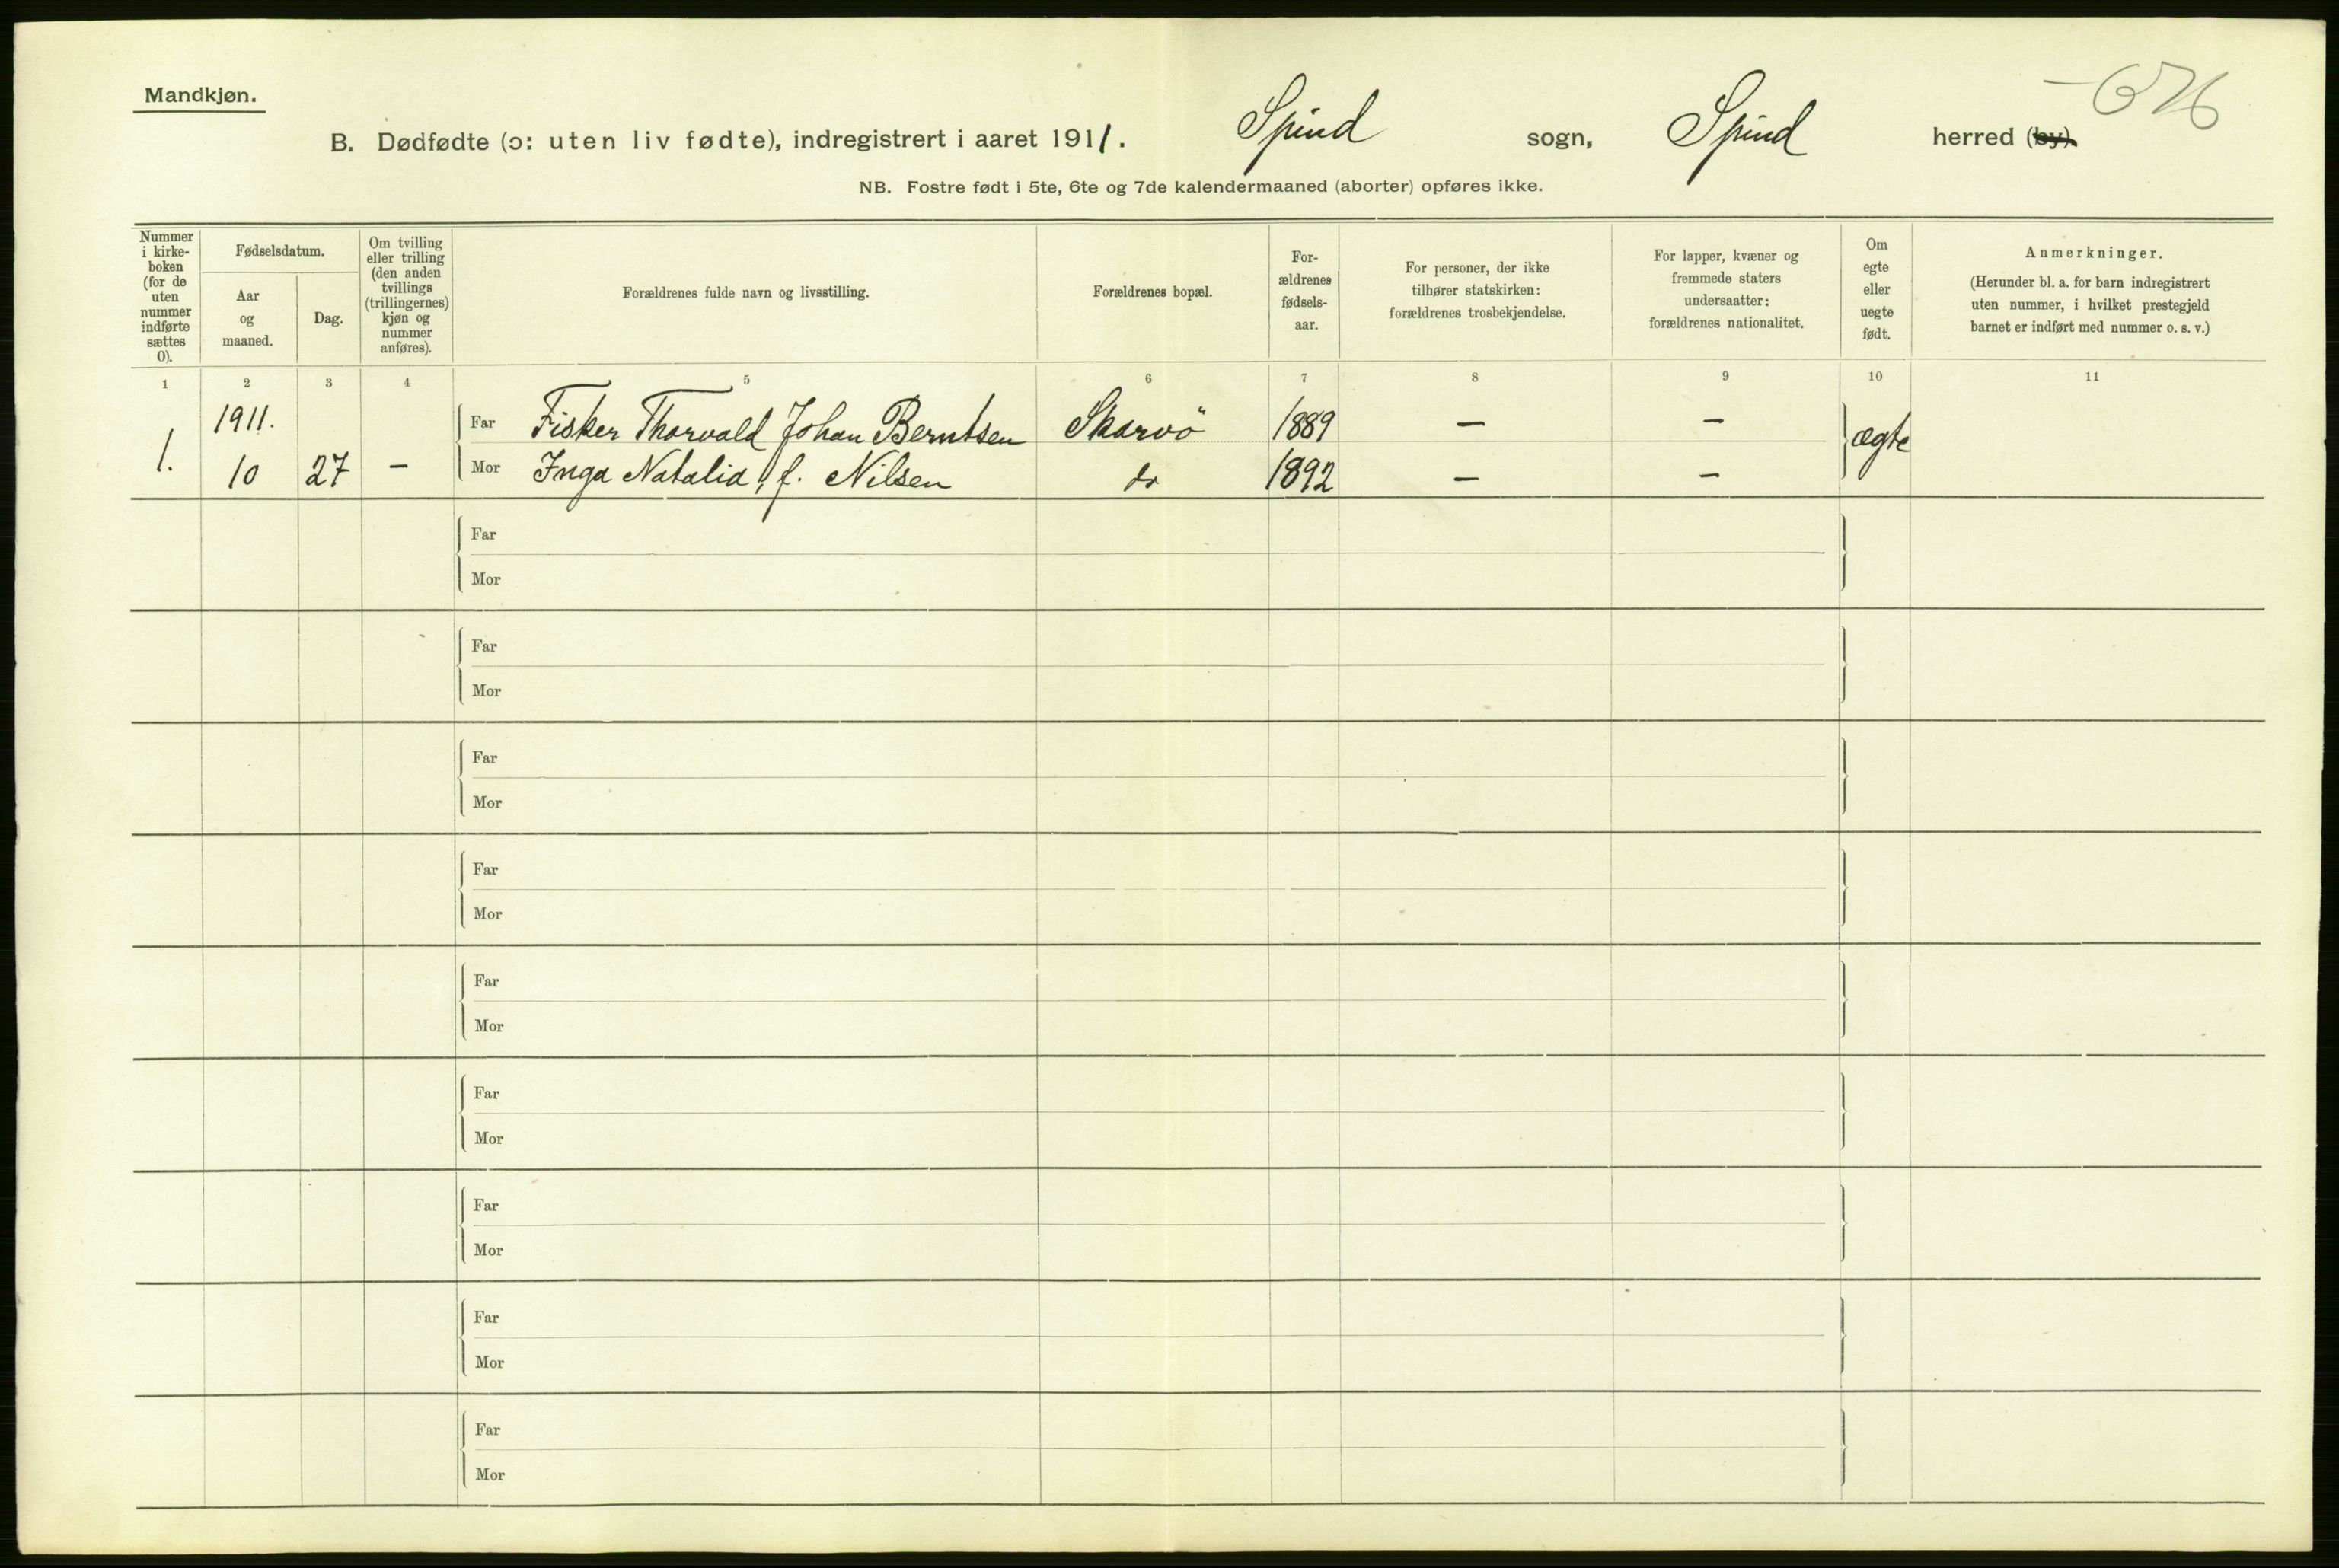 Mandkjøn.
B. Dødfødte (ɔ: uten liv fødte), indregistrert i aaret 1911. Spind sogn, Spind herred (by).
NB. Fostre født i 5te, 6te og 7de kalendermaaned (aborter) opføres ikke.
Nummer
i kirke-
boken
(for de
uten
nummer
indførte
sættes
0).
Fødselsdatum.
Aar
og
maaned.
Dag.
Om tvilling
eller trilling
(den anden
tvillings
(trillingernes)
kjøn og
nummer
anføres).
Forældrenes fulde navn og livsstilling.
Forældrenes bopæl.
For-
ældrenes
fødsels-
aar.
For personer, der ikke
tilhører statskirken:
forældrenes trosbekjendelse.
For lapper, kvæner og
fremmede staters
undersaatter:
forældrenes nationalitet.
Om
egte
eller
uegte
født.
Anmerkninger.
(Herunder bl. a. for barn indregistrert
uten nummer, i hvilket prestegjeld
barnet er indført med nummer o. s. v.)
1 2 3 4 5 6 7 8 9 10 11
1911. Far Fisker Thorvald Johan Berntsen Skarvö 1889 – – ægte
1. 10 27 – Mor Inga Natalia, f. Nilsen do 1892 – –
Far
Mor
Far
Mor
Far
Mor
Far
Mor
Far
Mor
Far
Mor
Far
Mor
Far
Mor
Far
Mor